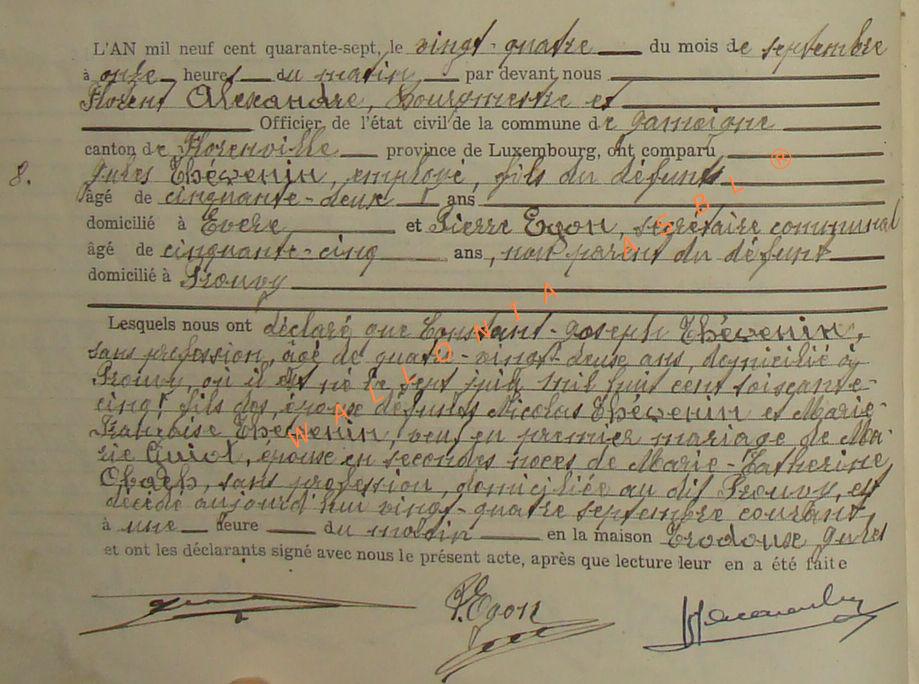 L'AN mil neuf cent quarante-sept, le vingt-quatre du mois de septembre
à onze heures du matin, par devant nous
Florent Alexandre, Bourgmestre et
Officier de l'état civil de la commune de Jamoigne
canton de Florenville province de Luxembourg, ont comparu
8. Jules Thévenin, employé, fils du défunt
âgé de cinquante-deux ans
domicilié à Evere et Pierre Egon, secrétaire communal
âgé de cinquante-cinq ans, non parent du défunt
domicilié à Prouvy
Lesquels nous ont déclaré que Constant-Joseph Thévenin,
sans profession, âgé de quatre-vingt-deux ans, domicilié à
Prouvy, où il est né le sept juin mil huit cent soixante-
cinq, fils des époux défunts Nicolas Thévenin et Marie-
Françoise Thévenin, veuf en premier mariage de Ma-
rie Guiot, époux en secondes noces de Marie-Catherine
sans profession, domiciliée au dit Prouvy, est
décédé aujourd'hui vingt-quatre septembre courant,
à une heure du matin en la maison Jules
et ont les déclarants signé avec nous le présent acte, après que lecture leur en a été faite
P. Egon
WALLONIA AEBL ®